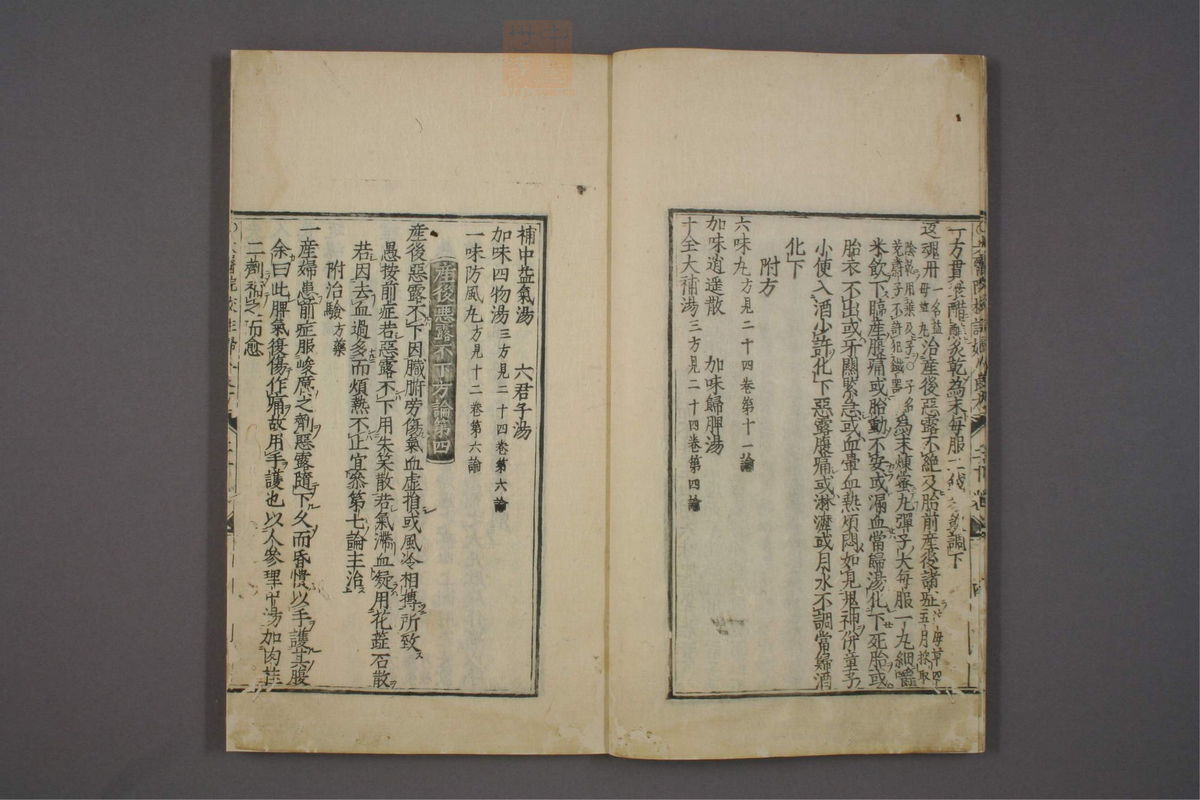 一方貫衆醋蘸炙乾為末每服二錢調下
返魂丹一名益母丸治產後惡露不絶及胎前產後諸症
五月採取
陰乾用葉及子
不許犯鐵器
為末煉蜜丸彈子大每服一丸細嚼
米飲下臨產腹痛或胎動不安或漏血當歸湯化下死胎或
胎衣不出或牙關緊急或血暈血熱煩悶如見鬼神倂童子
小便入酒少許化下惡露腹痛或淋瀝或月水不調當歸酒
化下
附方
六味丸方見二十四卷第十一論
加味逍遥散　加味歸脾湯
十全大補湯三方見二十四卷第四論
補中益氣湯　六君子湯
加味四物湯三方見二十四卷第六論
一味防風丸方見十二卷第六論
產後惡露不下方論第四
產後惡露不下因臟腑勞傷氣血虛損或風冷相摶所致
愚按前症若惡露不下用失笑散若氣滯血凝用花蕊石散
若因去血過多而煩熱不止宜叅第七論主治
附治驗方藥
一產婦患前症服峻厲之劑惡露隨下久而昏憒以手護其腹
余曰此脾氣復傷作痛故用手護也以人參理中湯加肉桂
二劑和之而愈